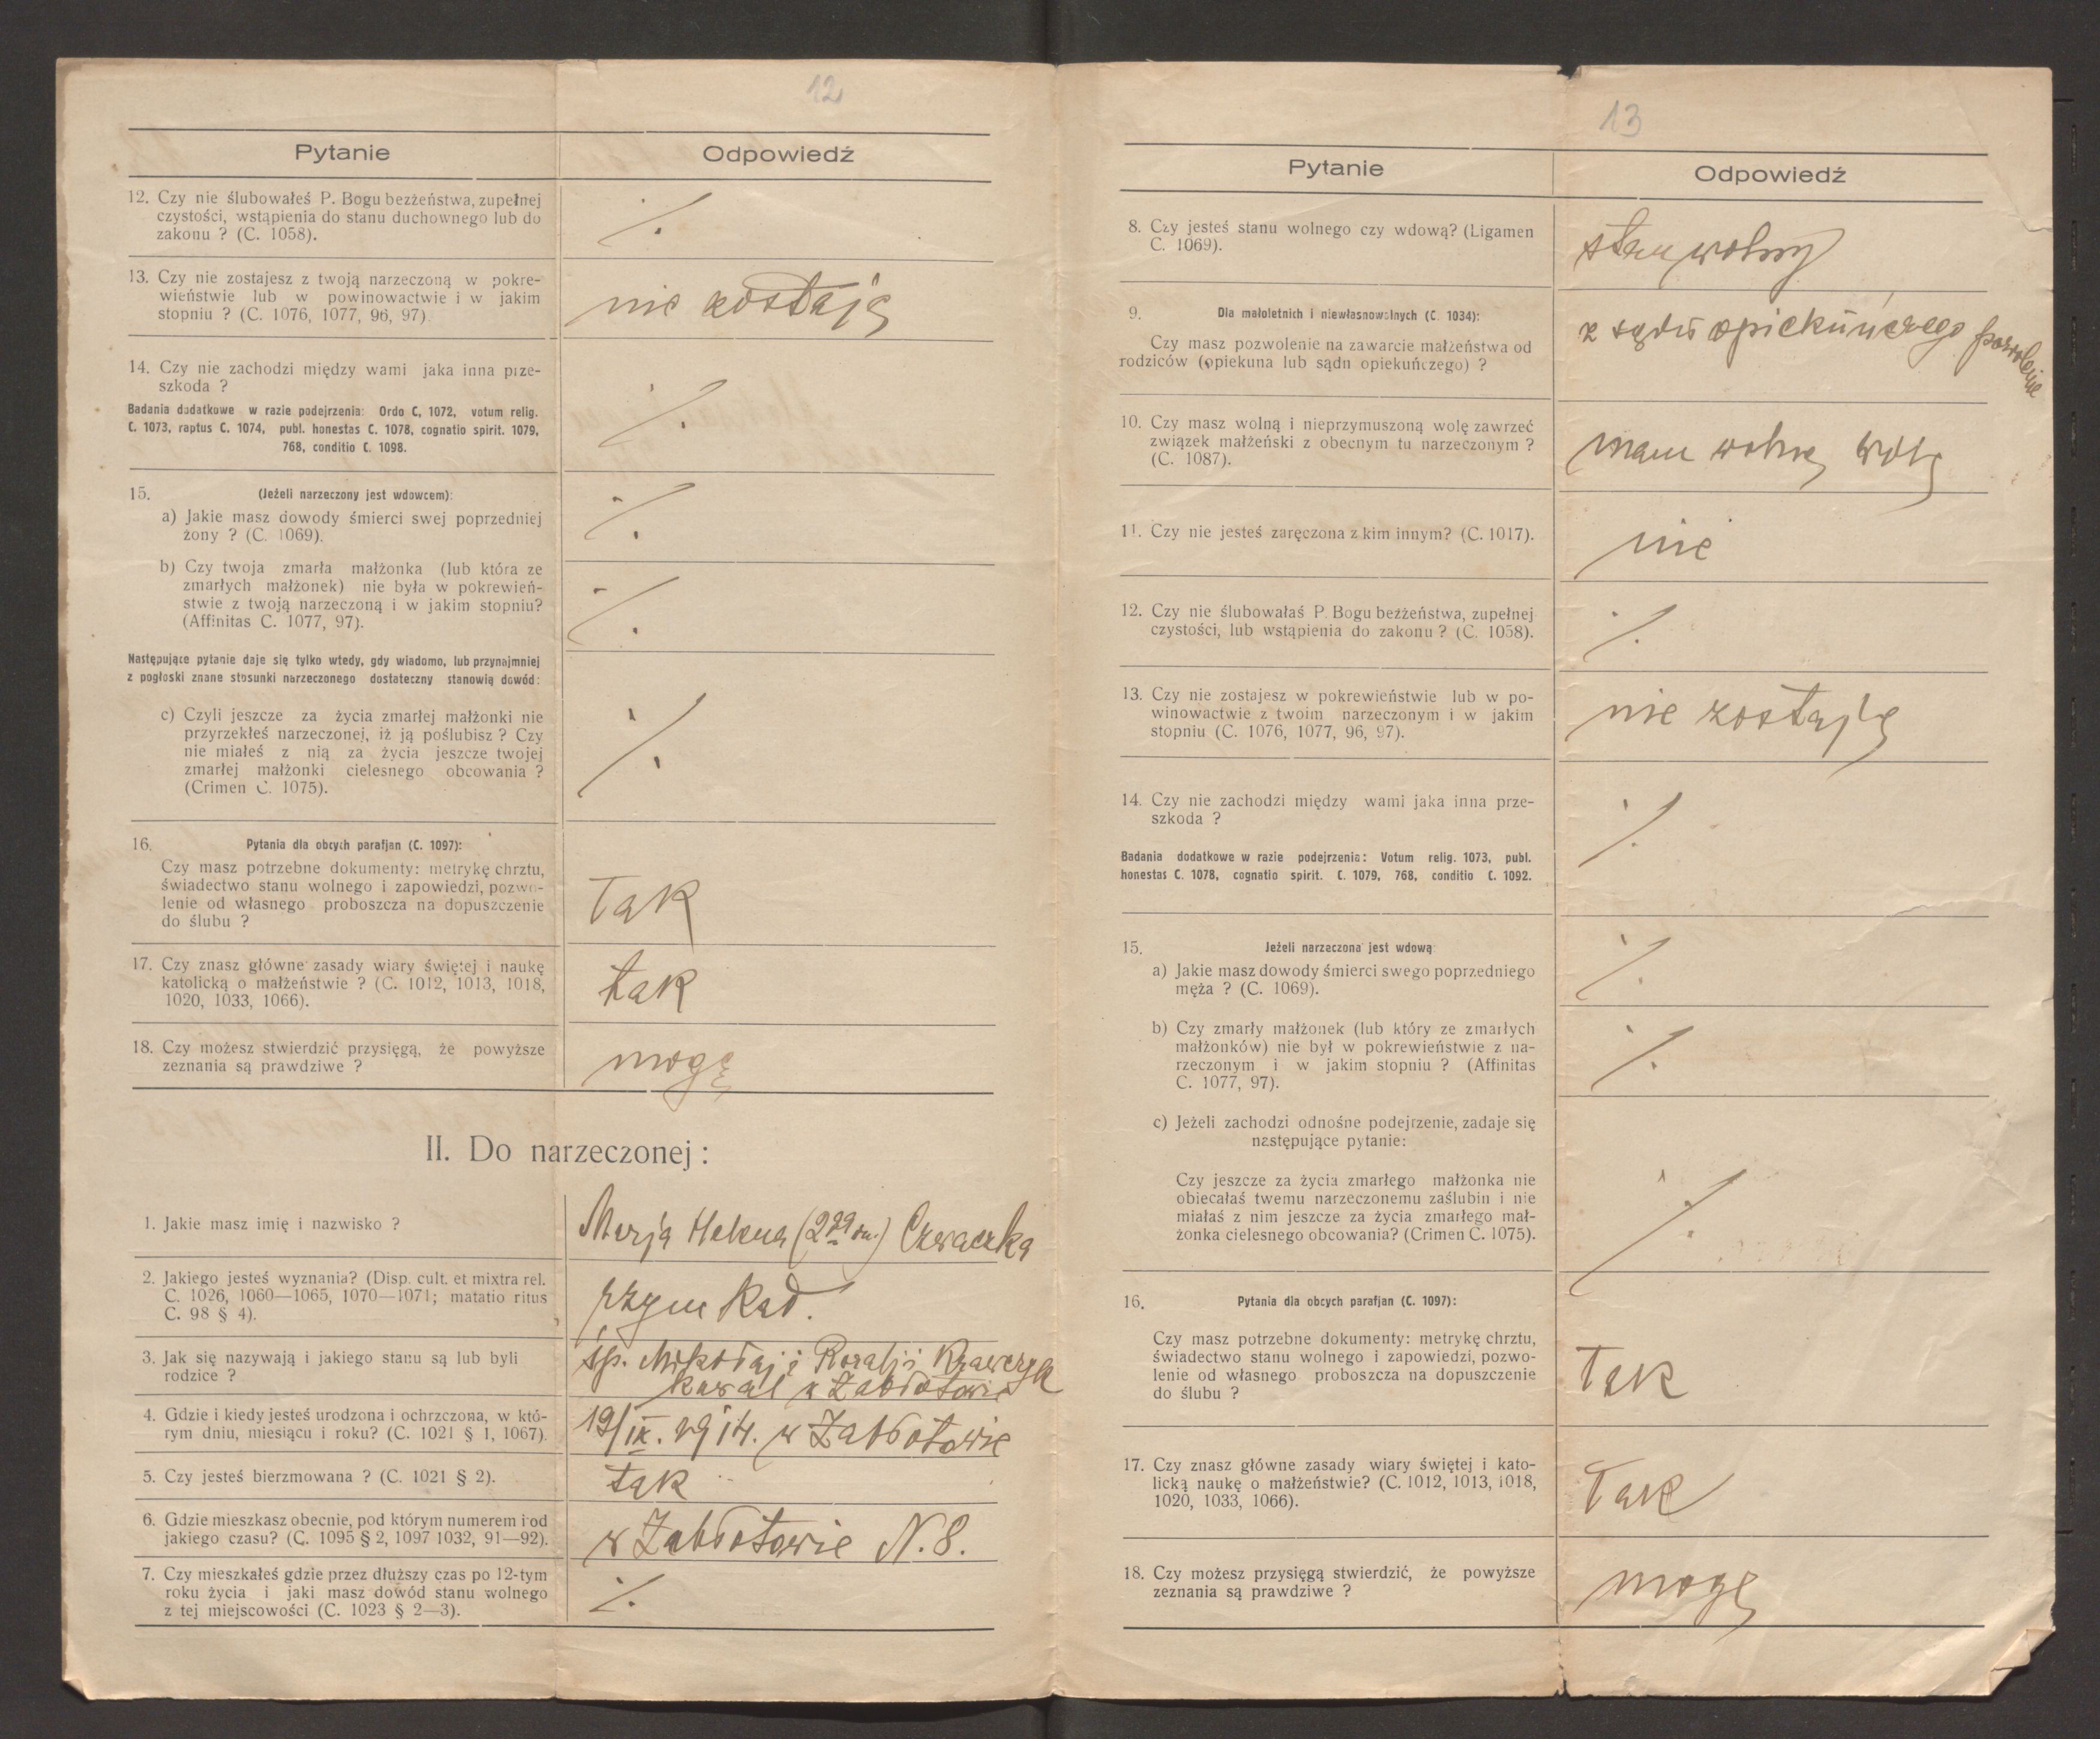 12
Pytanie
Odpowiedź
12. Czy nie ślubowałeś P. Bogu bezżeństwa, zupełnej
czystości, wstąpienia do stanu duchownego lub do
zakonu ? (C. 1058).
·/.
13. Czy nie zostajesz z twoją narzeczoną w pokre-
wieństwie lub w powinowactwie i w jakim
stopniu ? (C. 1076, 1077, 96, 97).
nie zostaję
14. Czy nie zachodzi między wami jaka inna prze-
szkoda ?
Badania dodatkowe w razie podejrzenia: Ordo C, 1072, votum relig.
C. 1073, raptus C. 1074, publ. honestas C. 1078, cognatio spirit. 1079,
768, conditio C. 1098.
·/.
15. (Jeżeli narzeczony jest wdowcem):
a) Jakie masz dowody śmierci swej poprzedniej
żony ? (C. 1069).
·/.
b) Czy twoja zmarła małżonka (lub która ze
zmarłych małżonek) nie była w pokrewień-
stwie z twoją narzeczoną i w jakim stopniu?
(Affinitas C. 1077, 97).
·/.
Następujące pytanie daje się tylko wtedy, gdy wiadomo, lub przynajmniej
z pogłoski znane stosunki narzeczonego dostateczny stanowią dowód:
c) Czyli jeszcze za życia zmarłej małżonki nie
przyrzekłeś narzeczonej, iż ją poślubisz ? Czy
nie miałeś z nią za życia jeszcze twojej
zmarłej małżonki cielesnego obcowania ?
(Crimen C. 1075).
·/.
16. Pytania dla obcych parafjan (C. 1097):
Czy masz potrzebne dokumenty: metrykę chrztu,
świadectwo stanu wolnego i zapowiedzi, pozwo-
lenie od własnego proboszcza na dopuszczenie
do ślubu ?
Tak
17. Czy znasz główne zasady wiary świętej i naukę
katolicką o małżeństwie ? (C. 1012, 1013, 1018,
1020, 1033, 1066).
tak
18. Czy możesz stwierdzić przysięgą, że powyższe
zeznania są prawdziwe ?
mogę
II. Do narzeczonej :
1. Jakie masz imię i nazwisko ?
Marja Helena (2ga im.) Czwaczka
2. Jakiego jesteś wyznania? (Disp. cult. et mixtra rel.
C. 1026, 1060—1065, 1070—1071; matatio ritus
C. 98 § 4).
rzym kat.
3. Jak się nazywają i jakiego stanu są lub byli
rodzice ?
śp. Mikołaj i Rozalji Krawczyk
kowal w Zabłotowie
4. Gdzie i kiedy jesteś urodzona i ochrzczona, w któ-
rym dniu, miesiącu i roku? (C. 1021 § 1, 1067).
19/IX. 1914. w Zabłotowie
5. Czy jesteś bierzmowana ? (C. 1021 § 2).
tak
6. Gdzie mieszkasz obecnie, pod którym numerem i od
jakiego czasu? (C. 1095 § 2, 1097 1032, 91—92).
w Zabłotowie N. 8.
7. Czy mieszkałeś gdzie przez dłuższy czas po 12-tym
roku życia i jaki masz dowód stanu wolnego
z tej miejscowości (C. 1023 § 2—3).
·/.
13
Pytanie
Odpowiedź
8. Czy jesteś stanu wolnego czy wdową? (Ligamen
C. 1069).
stan wolny
9. Dla małoletnich i niewłasnowolnych (C. 1034):
Czy masz pozwolenie na zawarcie małżeństwa od
rodziców (opiekuna lub sądn opiekuńczego) ?
z sądu opiekuńczego pozwolenie
10. Czy masz wolną i nieprzymuszoną wolę zawrzeć
związek małżeński z obecnym tu narzeczonym ?
(C. 1087).
mam wolną wolę
11. Czy nie jesteś zaręczona z kim innym? (C. 1017).
nie
12. Czy nie ślubowałaś P. Bogu beźżeństwa, zupełnej
czystości, lub wstąpienia do zakonu ? (C. 1058).
·/.
13. Czy nie zostajesz w pokrewieństwie lub w po-
winowactwie z twoim narzeczonym i w jakim
stopniu (C. 1076, 1077, 96, 97).
nie zostaję
14. Czy nie zachodzi między wami jaka inna prze-
szkoda ?
Badania dodatkowe w razie podejrzenia: Votum relig. 1073, publ.
honestas C. 1078, cognatio spirit. C. 1079, 768, conditio C. 1092.
·/.
15. Jeżeli narzeczona jest wdową
a) Jakie masz dowody śmierci swego poprzedniego
męża ? (C. 1069).
·/.
b) Czy zmarły małżonek (lub który ze zmarłych
małżonków) nie był w pokrewieństwie z na-
rzeczonym i w jakim stopniu ? (Affinitas
C. 1077, 97).
·/.
c) Jeżeli zachodzi odnośne podejrzenie, zadaje się
następujące pytanie:
Czy jeszcze za życia zmarłego małżonka nie
obiecałaś twemu narzeczonemu zaślubin i nie
miałaś z nim jeszcze za życia zmarłego mał-
żonka cielesnego obcowania? (Crimen C. 1075).
·/.
16. Pytania dla obcych parafjan (C. 1097):
Czy masz potrzebne dokumenty: metrykę chrztu,
świadectwo stanu wolnego i zapowiedzi, pozwo-
lenie od własnego proboszcza na dopuszczenie
do ślubu ?
Tak
17. Czy znasz główne zasady wiary świętej i kato-
licką naukę o małżeństwie? (C. 1012, 1013, 1018,
1020, 1033, 1066).
Tak
18. Czy możesz przysięgą stwierdzić, że powyższe
zeznania są prawdziwe ?
mogę